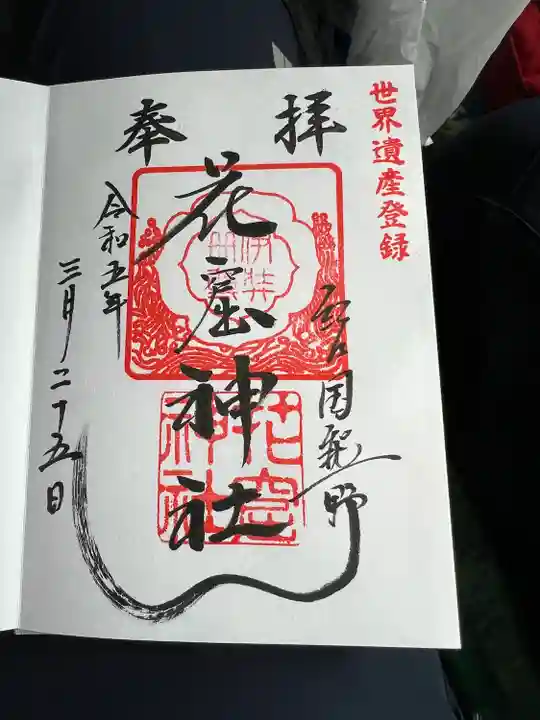 世界遺産登録
奉拝
国熊野
花窟神社
令和五年
三月二十五日
伊弉
冊尊
花窟
神社